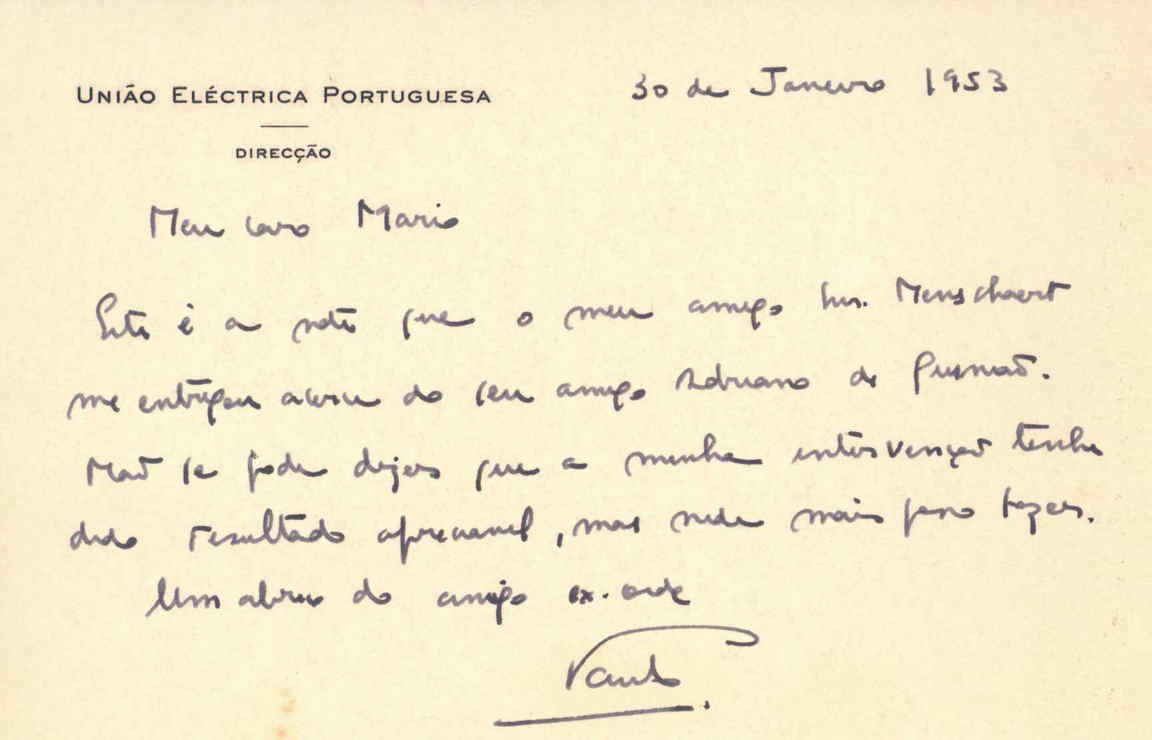 UNIÃO ELÉCTRICA PORTUGUESA
DIRECÇÃO
30 de Janeiro 1953
Meu caro Mario
Esta é a nota que o meu amigo Menschaert
me entregou acerca do seu amigo Adriano de Gusmão.
Não se pode dizer que a minha intervenção tenha
dado resultado apreciavel, mas nada mais posso fazer.
Um abraço do amigo